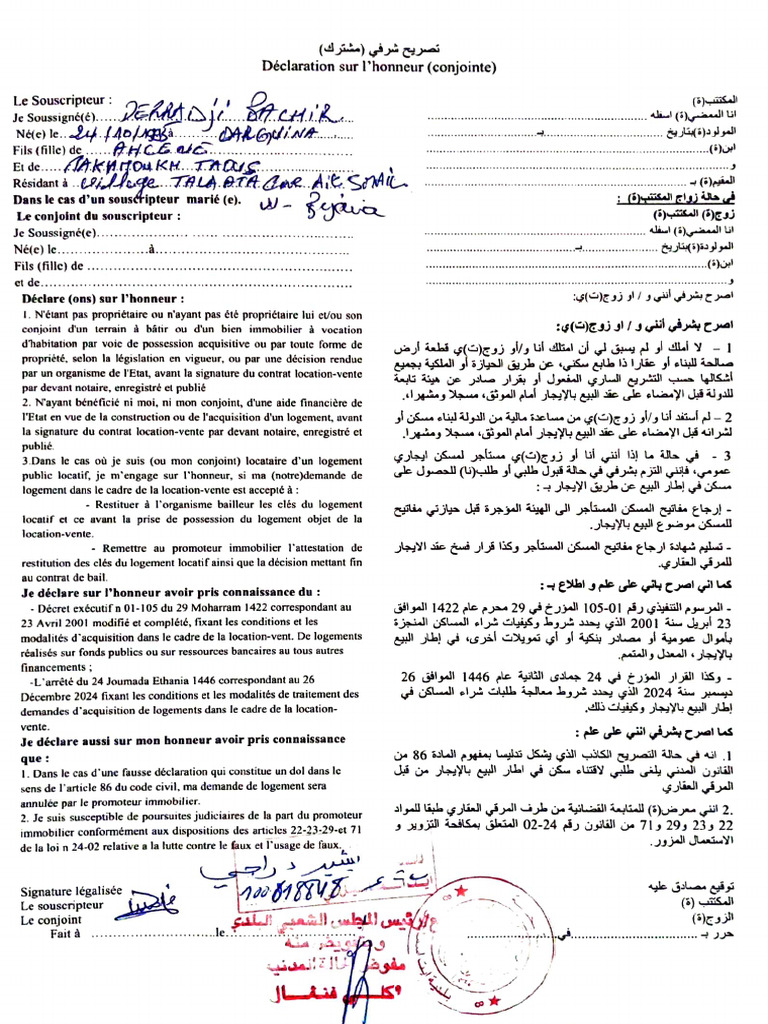 تصريح شرفي (مشترك)
Déclaration sur l'honneur (conjointe)
Le Souscripteur :
Je Soussigné(e) DERRADJI BACHIR
Né(e) le 24/10/19 à DARGUINA
Fils (fille) de AHCENE
Et de MAKHMOUKH TAOUS
Résidant à village TALA ATA Cne Ait Smail
Dans le cas d'un souscripteur marié (e). W - Bejaia
Le conjoint du souscripteur :
Je Soussigné(e)
Né(e) le à
Fils (fille) de
et de
Déclare (ons) sur l'honneur :
1. N'étant pas propriétaire ou n'ayant pas été propriétaire lui et/ou son
conjoint d'un terrain à bâtir ou d'un bien immobilier à vocation
d'habitation par voie de possession acquisitive ou par toute forme de
propriété, selon la législation en vigueur, ou par une décision rendue
par un organisme de l'Etat, avant la signature du contrat location-vente
par devant notaire, enregistré et publié
2. N'ayant bénéficié ni moi, ni mon conjoint, d'une aide financière de
l'Etat en vue de la construction ou de l'acquisition d'un logement, avant
la signature du contrat location-vente par devant notaire, enregistré et
publié.
3.Dans le cas où je suis (ou mon conjoint) locataire d'un logement
public locatif, je m'engage sur l'honneur, si ma (notre)demande de
logement dans le cadre de la location-vente est accepté à :
- Restituer à l'organisme bailleur les clés du logement
locatif et ce avant la prise de possession du logement objet de la
location-vente.
- Remettre au promoteur immobilier l'attestation de
restitution des clés du logement locatif ainsi que la décision mettant fin
au contrat de bail.
Je déclare sur l'honneur avoir pris connaissance du :
- Décret exécutif n 01-105 du 29 Moharram 1422 correspondant au
23 Avril 2001 modifié et complété, fixant les conditions et les
modalités d'acquisition dans le cadre de la location-vent. De logements
réalisés sur fonds publics ou sur ressources bancaires au tous autres
financements ;
-L'arrêté du 24 Joumada Ethania 1446 correspondant au 26
Décembre 2024 fixant les conditions et les modalités de traitement des
demandes d'acquisition de logements dans le cadre de la location-
vente.
Je déclare aussi sur mon honneur avoir pris connaissance
que :
1. Dans le cas d'une fausse déclaration qui constitue un dol dans le
sens de l'article 86 du code civil, ma demande de logement sera
annulée par le promoteur immobilier.
2. Je suis susceptible de poursuites judiciaires de la part du promoteur
immobilier conformément aux dispositions des articles 22-23-29-et 71
de la loi n 24-02 relative a la lutte contre le faux et l'usage de faux.
Signature légalisée
Le souscripteur
Le conjoint
Fait à le
المكتتب(ة)
انا الممضي(ة) اسفله
المولود(ة)بتاريخ بـ
ابن(ة)
و
المقيم(ة) بـ
في حالة زواج المكتتب(ة) :
زوج(ة) المكتتب(ة)
انا الممضي(ة) أسفله
المولودة(ة)بتاريخ بـ
ابن(ة)
و
اصرح بشرفي أنني و / او زوج(ت)ي:
اصرح بشرفي أنني و / او زوج(ت)ي:
1 – لا أملك أو لم يسبق لي أن امتلك أنا و/أو زوج(ت)ي قطعة أرض
صالحة للبناء أو عقارا ذا طابع سكني، عن طريق الحيازة أو الملكية بجميع
أشكالها حسب التشريع الساري المفعول أو بقرار صادر عن هيئة تابعة
للدولة قبل الإمضاء على عقد البيع بالإيجار أمام الموثق، مسجلا ومشهرا،
2 – لم أستفد أنا و/أو زوج(ت)ي من مساعدة مالية من الدولة لبناء مسكن أو
لشرائه قبل الإمضاء على عقد البيع بالإيجار أمام الموثق، مسجلا ومشهرا.
3 - في حالة ما إذا أنني أنا أو زوج(ت)ي مستأجر لمسكن ايجاري
عمومي، فإنني التزم بشرفي في حالة قبول طلبي أو طلب(نا) للحصول على
مسكن في إطار البيع عن طريق الإيجار بـ :
– إرجاع مفاتيح المسكن المستأجر الى الهيئة المؤجرة قبل حيازتي مفاتيح
للمسكن موضوع البيع بالإيجار.
– تسليم شهادة ارجاع مفاتيح المسكن المستأجر وكذا قرار فسخ عقد الايجار
للمرقي العقاري.
كما اني اصرح باني على علم و اطلاع بـ :
– المرسوم التنفيذي رقم 01-105 المؤرخ في 29 محرم عام 1422 الموافق
23 أبريل سنة 2001 الذي يحدد شروط وكيفيات شراء المساكن المنجزة
بأموال عمومية أو مصادر بنكية أو أي تمويلات أخرى، في إطار البيع
بالإيجار، المعدل والمتمم.
– وكذا القرار المؤرخ في 24 جمادى الثانية عام 1446 الموافق 26
ديسمبر سنة 2024 الذي يحدد شروط معالجة طلبات شراء المساكن في
إطار البيع بالإيجار وكيفيات ذلك.
كما اصرح بشرفي انني على علم :
1. انه في حالة التصريح الكاذب الذي يشكل تدليسا بمفهوم المادة 86 من
القانون المدني يلغى طلبي لاقتناء سكن في اطار البيع بالإيجار من قبل
المرقي العقاري
2. انني معرض(ة) للمتابعة القضائية من طرف المرقي العقاري طبقا للمواد
22 و23 و29 و71 من القانون رقم 24-02 المتعلق بمكافحة التزوير و
الاستعمال المزور.
توقيع مصادق عليه
المكتتب (ة)
الزوج(ة)
حرر بـ في
بشير دراجي
100818848
ع/رئيس المجلس الشعبي البلدي
وبتفويض منه
مفوض الحالة المدنية